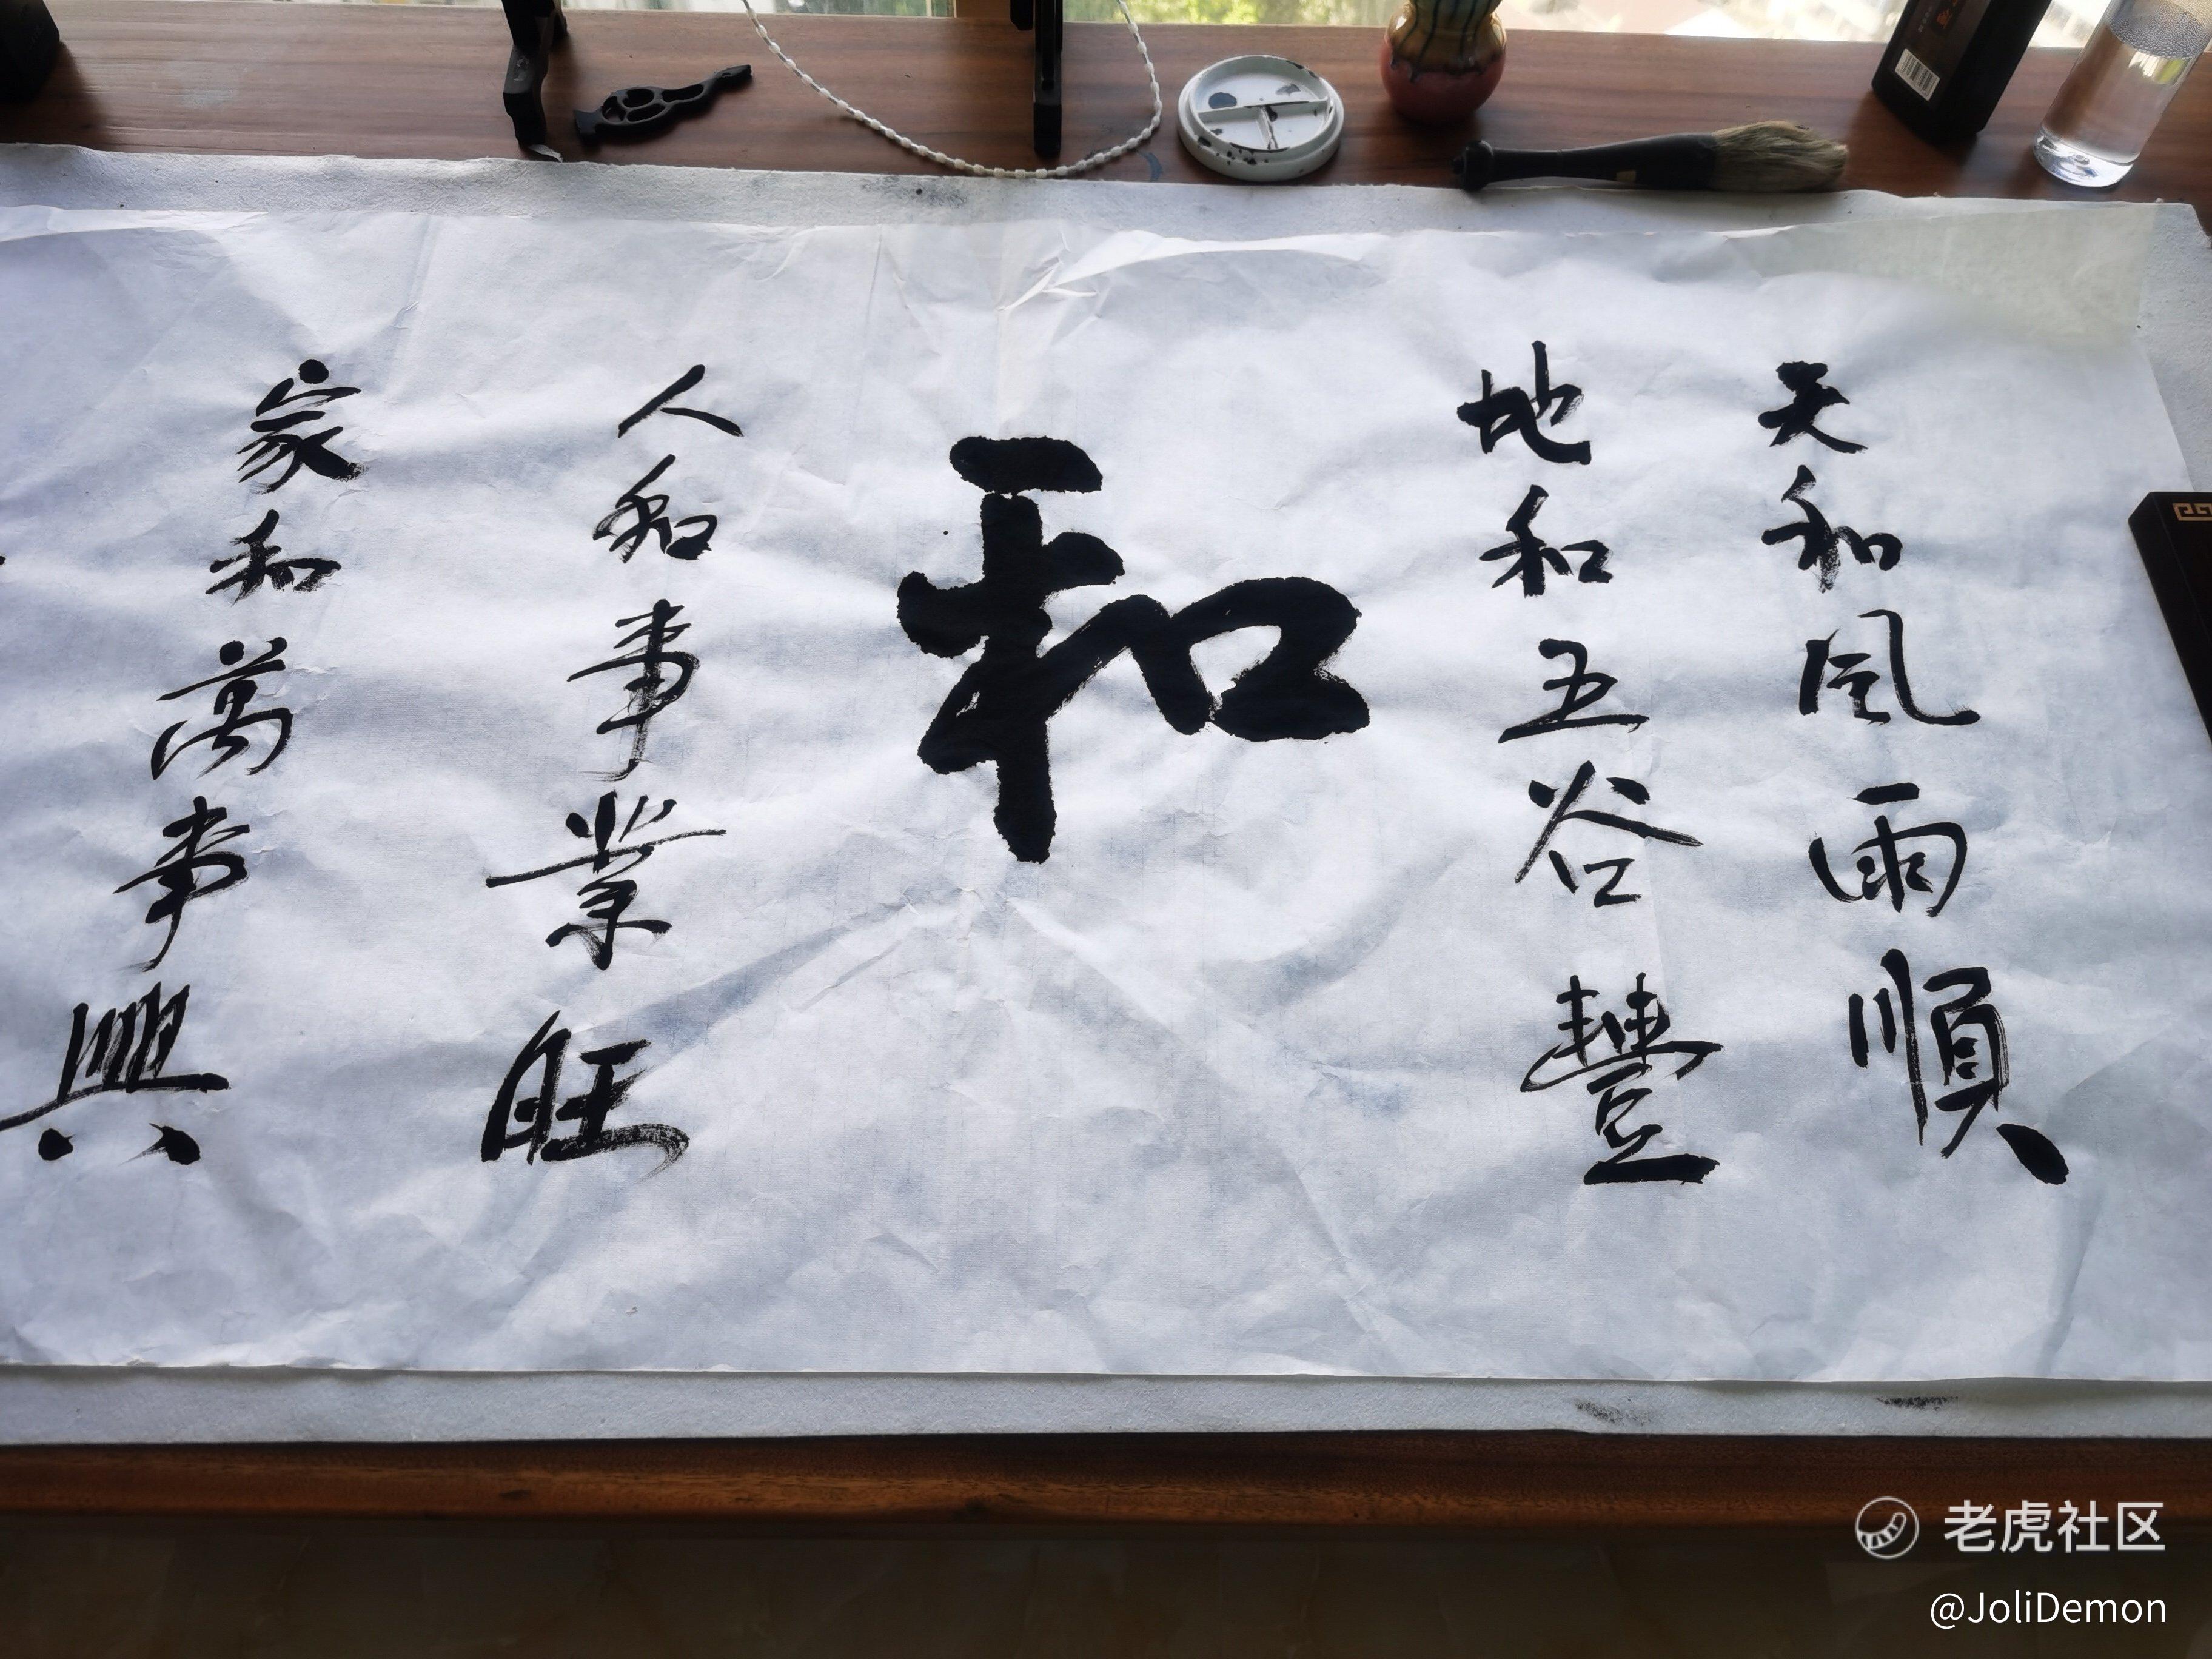 天和風雨順
地和五谷豐
和
人和事業旺
家和萬事興
老虎社区
@JoliDemon